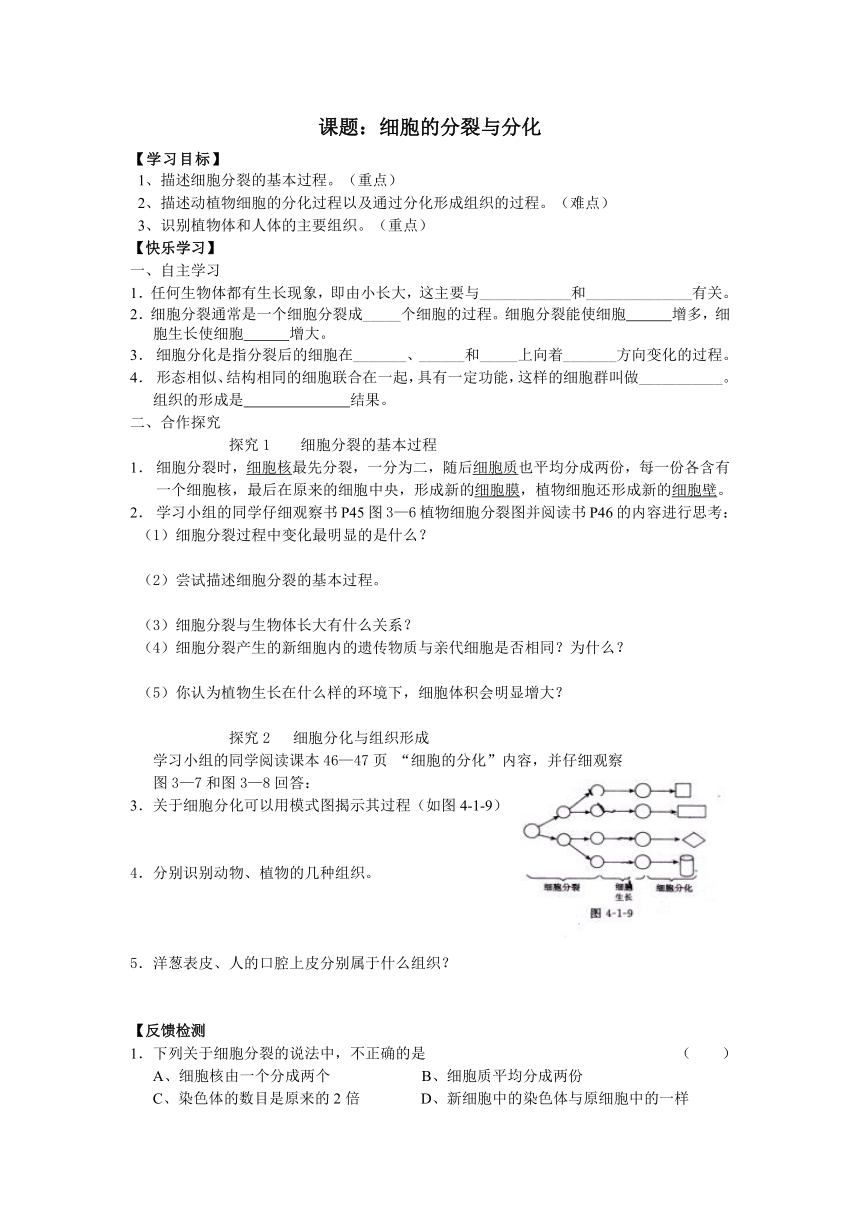 课题：细胞的分裂与分化
【学习目标】
1、描述细胞分裂的基本过程。（重点）
2、描述动植物细胞的分化过程以及通过分化形成组织的过程。（难点）
3、识别植物体和人体的主要组织。（重点）
【快乐学习】
一、自主学习
1．任何生物体都有生长现象，即由小长大，这主要与____________和______________有关。
2．细胞分裂通常是一个细胞分裂成_____个细胞的过程。细胞分裂能使细胞______增多，细
胞生长使细胞______增大。
3． 细胞分化是指分裂后的细胞在_______、______和_____上向着_______方向变化的过程。
4． 形态相似、结构相同的细胞联合在一起，具有一定功能，这样的细胞群叫做___________。
组织的形成是______________结果。
二、合作探究
探究1 细胞分裂的基本过程
1． 细胞分裂时，细胞核最先分裂，一分为二，随后细胞质也平均分成两份，每一份各含有
一个细胞核，最后在原来的细胞中央，形成新的细胞膜，植物细胞还形成新的细胞壁。
2． 学习小组的同学仔细观察书P45图3—6植物细胞分裂图并阅读书P46的内容进行思考：
（1）细胞分裂过程中变化最明显的是什么？
（2）尝试描述细胞分裂的基本过程。
（3）细胞分裂与生物体长大有什么关系？
（4）细胞分裂产生的新细胞内的遗传物质与亲代细胞是否相同？为什么？
（5）你认为植物生长在什么样的环境下，细胞体积会明显增大？
探究2 细胞分化与组织形成
学习小组的同学阅读课本46—47页 “细胞的分化”内容，并仔细观察
图3—7和图3—8回答：
3．关于细胞分化可以用模式图揭示其过程（如图4-1-9）
细胞分裂 细胞生长 细胞分化
图 4-1-9
4．分别识别动物、植物的几种组织。
5．洋葱表皮、人的口腔上皮分别属于什么组织？
【反馈检测
1．下列关于细胞分裂的说法中，不正确的是 （ ）
A、细胞核由一个分成两个 B、细胞质平均分成两份
C、染色体的数目是原来的2倍 D、新细胞中的染色体与原细胞中的一样